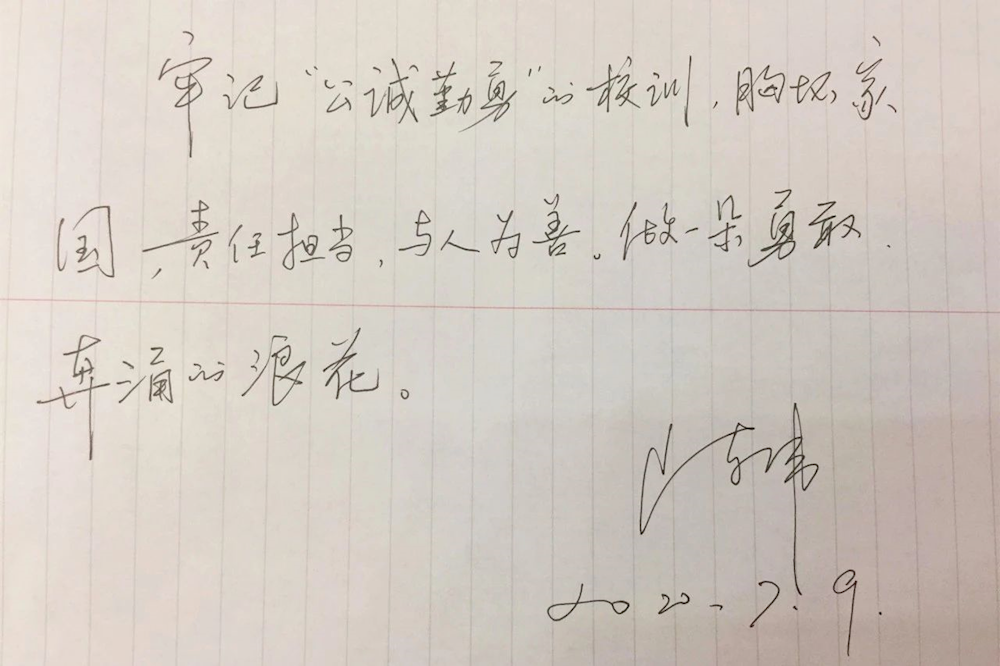 牢记“公诚勤勇”的校训，胸怀家
国，责任担当，与人为善。做一朵勇敢
奔涌的浪花。
陈伟
2020.7.9.